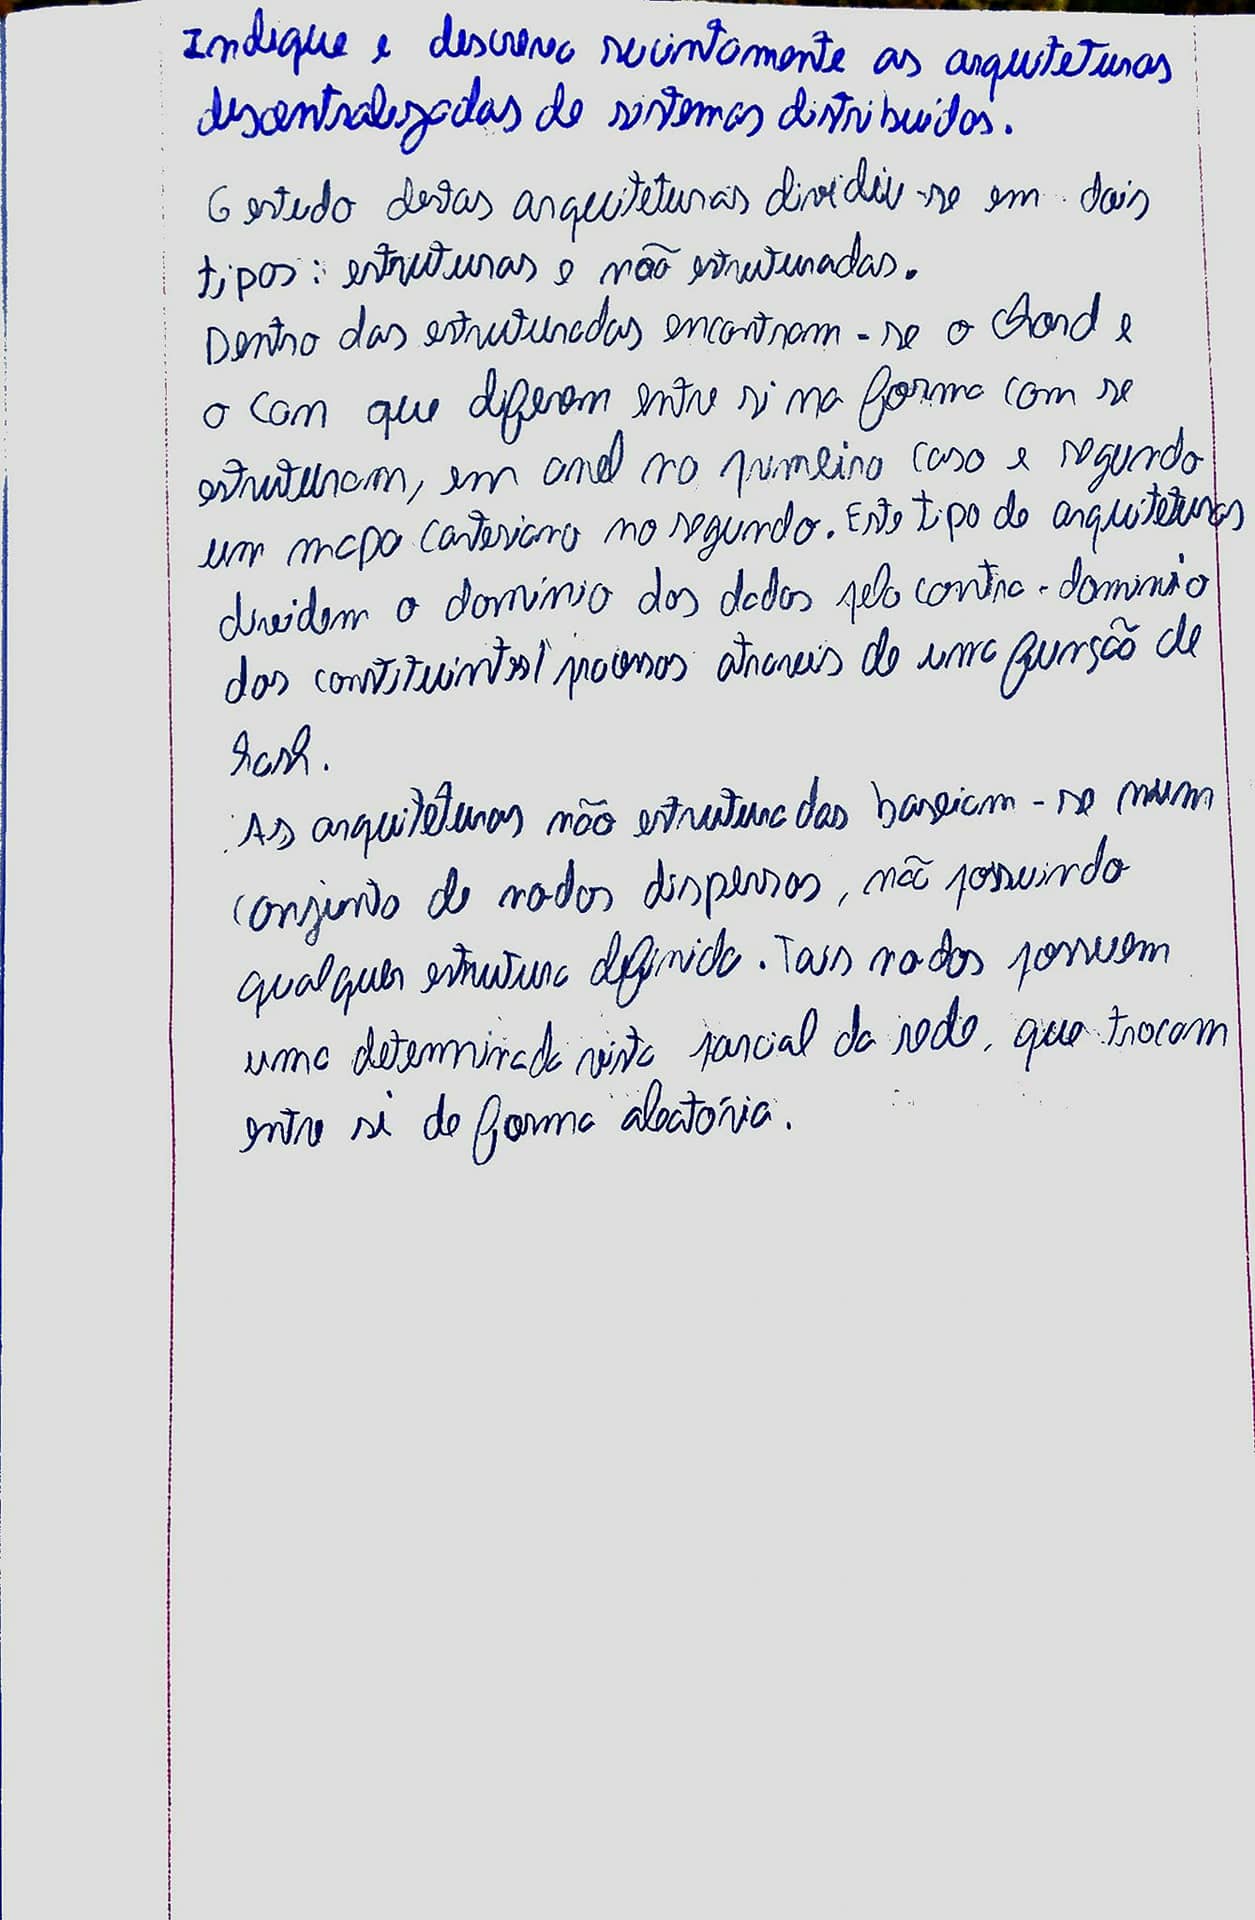 Indique e descreva sucintamente as arquiteturas
descentralizadas de sistemas distribuídos.
O estudo destas arquiteturas dividiu-se em dois
tipos: estruturas e não estruturadas.
Dentro das estruturadas encontram-se o Chord e
o Can que diferem entre si na forma com se
estruturam, em anel no primeiro caso e segundo
um mapa cartesiano no segundo. Este tipo de arquiteturas
dividem o domínio dos dados pelo contra-domínio
dos constituintes/processos através de uma função de
hash.
As arquiteturas não estruturadas baseiam-se num
conjunto de nodos dispersos, não possuindo
qualquer estrutura definida. Tais nodos possuem
uma determinada vista parcial da rede, que trocam
entre si de forma aleatória.